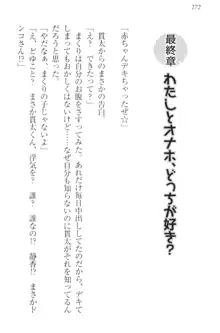 272
最終章 わたしとオナホ、どっちが好き？
「赤ちゃんデキちゃったぜ☆」
貫太からのまさかの告白。
「え？　できたって？」
まくりは自分のお腹をさすってみた。あれだけ毎日中出ししてたのだから、デキて
しまってもおかしくはない。けど……なぜ自分も知らないのに貫太がそれを知ってるん
だろうと思った。
「やだなぁ。まくりの子じゃないよ」
「え、どゆこと？　まさか貫太くん、浮気を？　誰？　誰なの！？　静香？　まさかド
ンコさん！？」